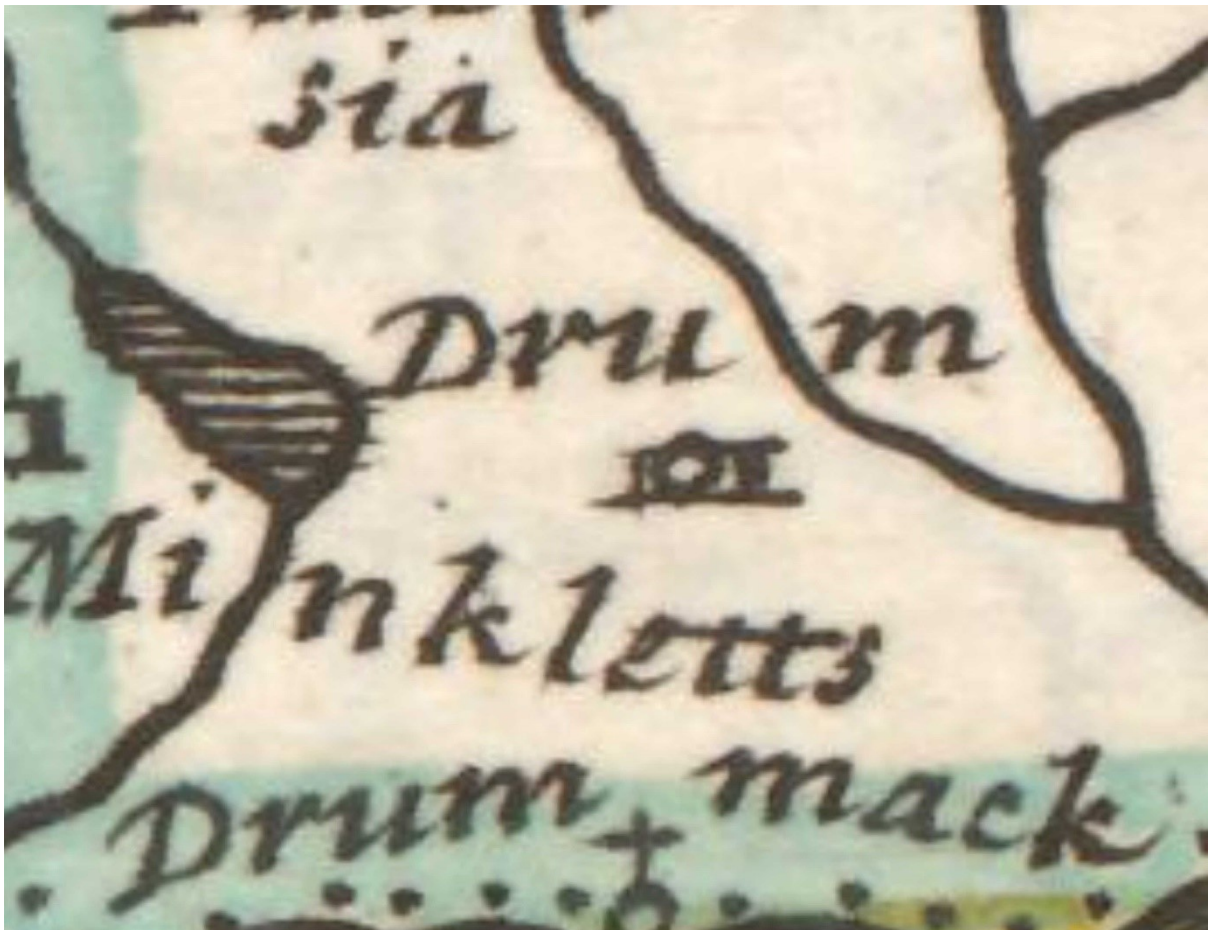 sia
Drum
Minkletts
Drum mack